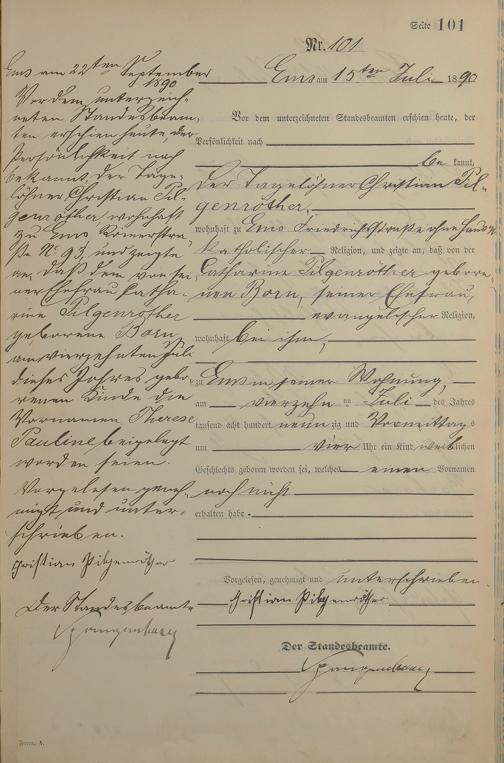 Seite 101
Nr. 101
Ems am 15ten Juli 1890
Vor dem unterzeichneten Standesbeamten erschien heute, der
Persönlichkeit nach
be kannt,
der Tagelöhner Christian Pil-
genröther,
wohnhaft zu Ems Friedrichstraße ohne Haus N.
katholischer Religion, und zeigte an, daß von der
Catharine Pilgenröther gebore-
nen Born, seiner Ehefrau,
evangelischer Religion,
wohnhaft bei ihm,
zu Ems in seiner Wohnung,
am vierzehn ten Juli des Jahres
tausend acht hundert neun zig und Vormittags
um vier Uhr ein Kind weiblichen
Geschlechts geboren worden sei, welches einen Vornamen
noch nicht
erhalten habe.
Vorgelesen, genehmigt und unterschrieben
Christian Pilgenröther
Der Standesbeamte.
Form. A.
Ems am 22ten September
1890
Vor dem unterzeich-
neten Standesbeam-
ten erschien heute, der
Persönlichkeit nach
bekannt, der Tage-
löhner Christian Pil-
genröther, wohnhaft
zu Ems Römerstra-
ße No 93, und zeigte
an, daß dem von sei-
ner Ehefrau Catha-
rine Pilgenröther
geborene Born,
am vierzehnten Juli
dieses Jahres gebo-
renen Kinde die
Vornamen Therese
Pauline beigelegt
worden seien.
Vorgelesen geneh-
migt und unter-
schrieben.
Christian Pilgenröther
Der Standesbeamte